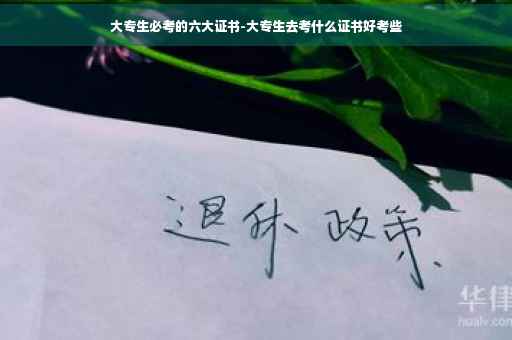 大专生必考的六大证书-大专生去考什么证书好考些
退休 政策
华律
hualv.com